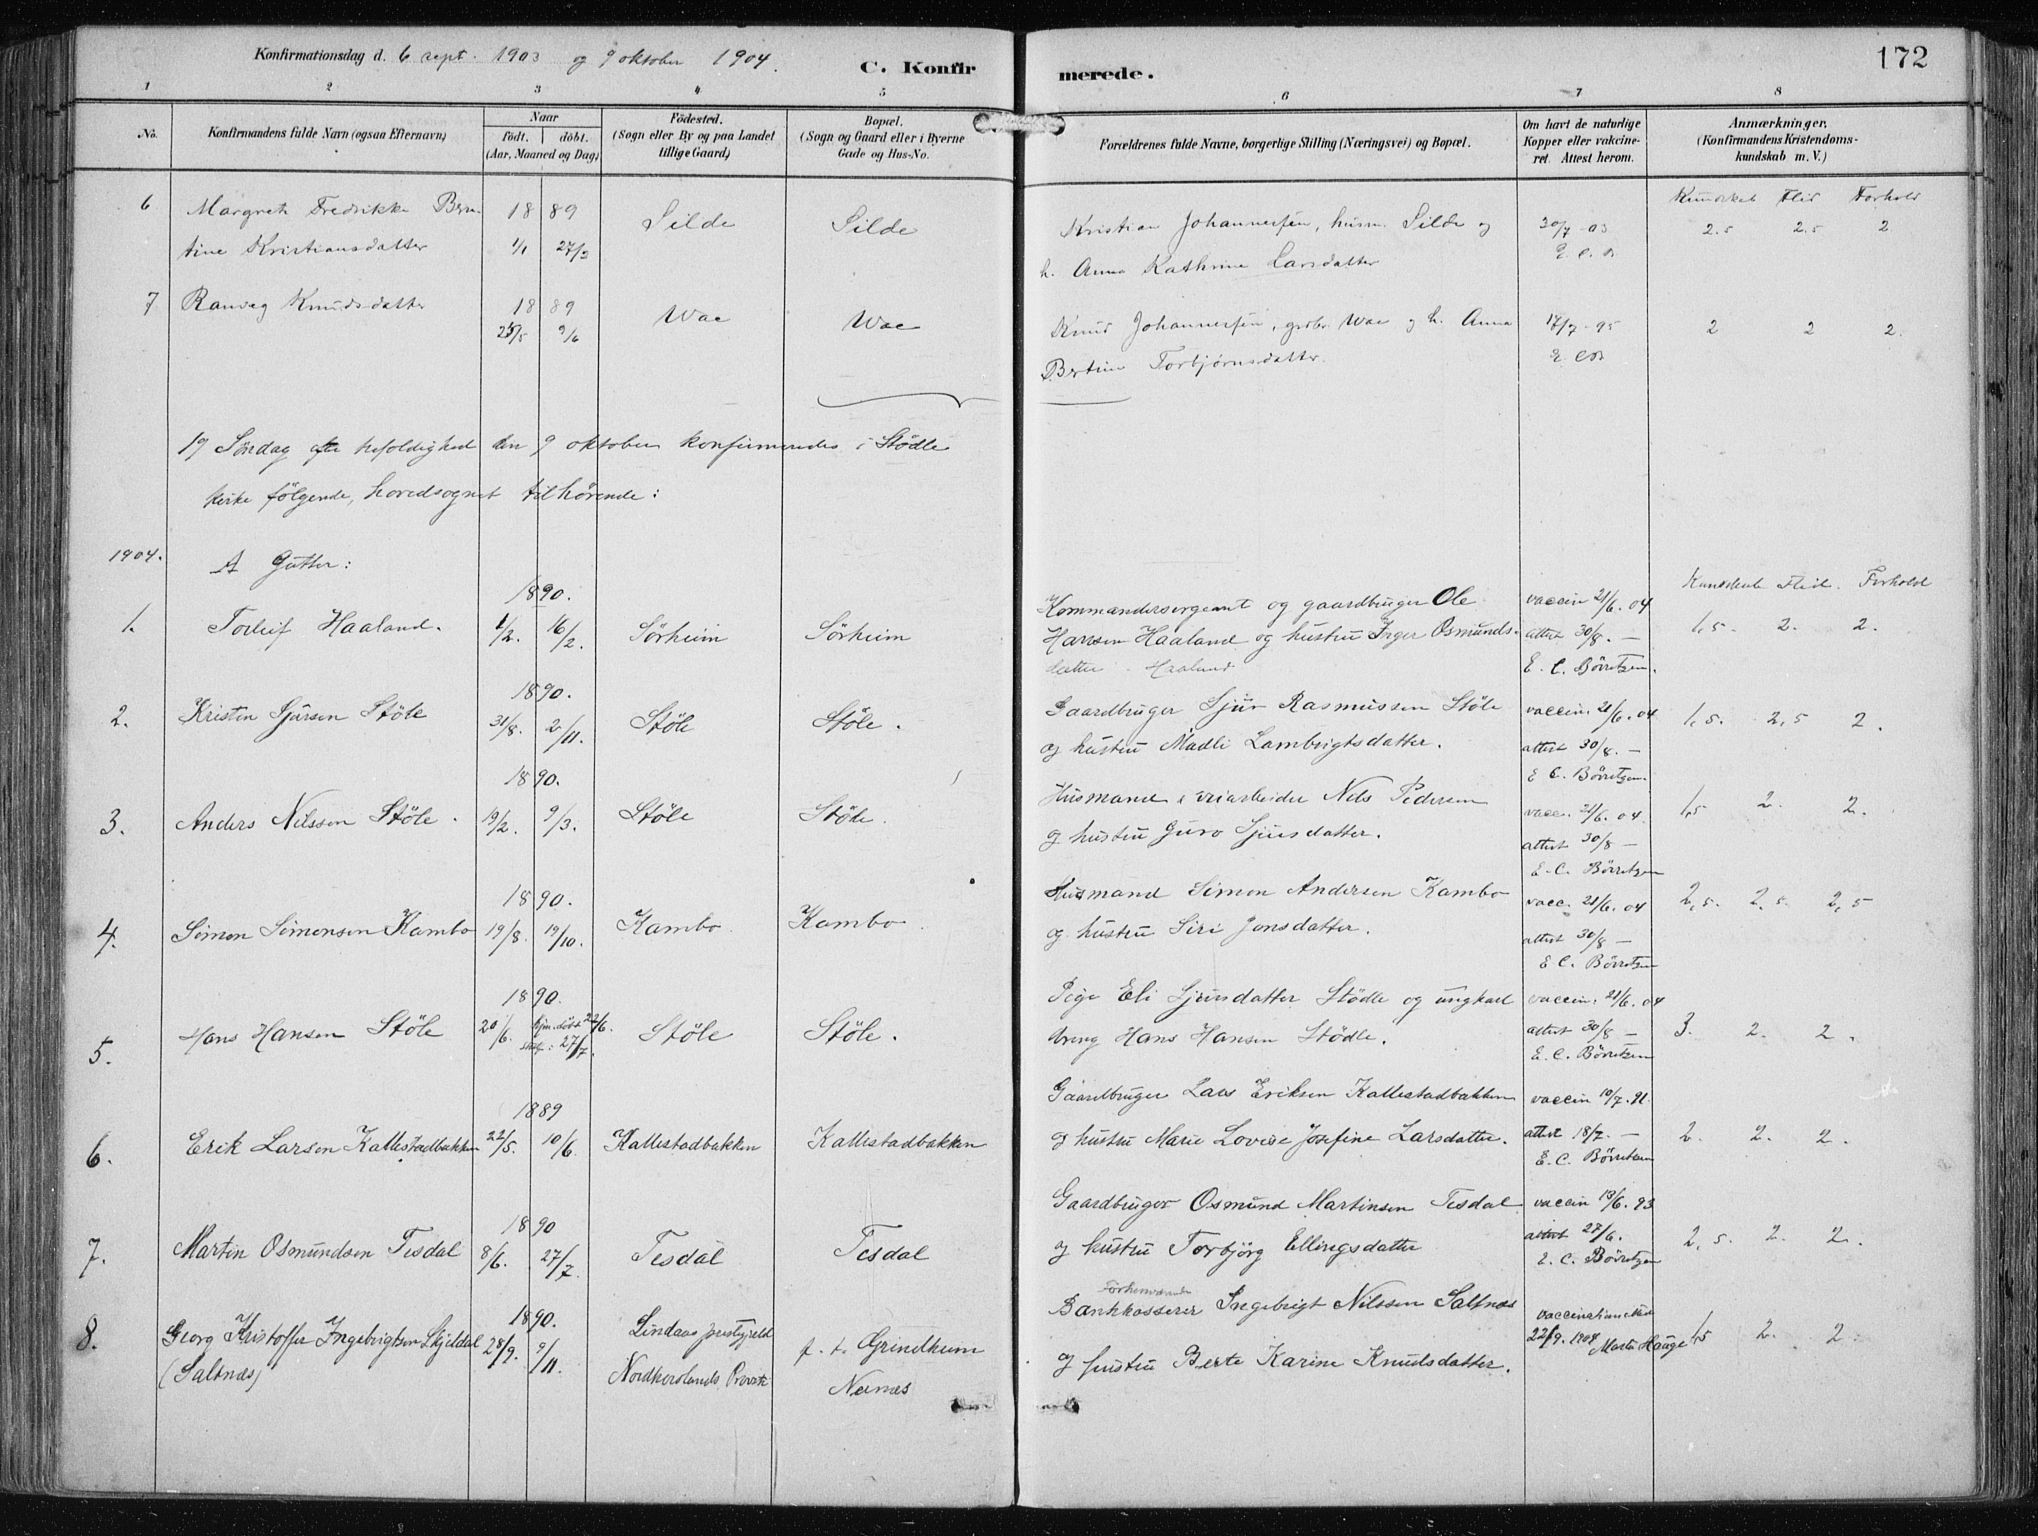 Konfirmationsdag d. 6 sept. 1903 og 9 oktober 1904.
C. Konfirmerede.
172
1 2 3 4 5 6 7 8
No.
Konfirmandens fulde Navn (ogsaa Efternavn)
Naar
födt. döbt.
(Aar, Maaned og Dag)
Födested.
(Sogn eller By og paa Landet
tillige Gaard)
Bopæl.
(Sogn og Gaard eller i Byerne
Gade og Hus-No.
Forældrenes fulde Navne, borgerlige Stilling (Næringsvei) og Bopæl.
Om havt de naturlige
Kopper eller vakcine-
ret. Attest herom.
Anmærkninger,
(Konfirmandens Kristendoms-
kundskab m. V.)
Kundskab Flid Forhold
6 Margrete Fredrikke Bern- 1889 Silde Silde Kristian Johannessen, husm. Silde og 30/7 03 2.5 2.5 2
tine Kristiansdatter 1/1 27/3 h. Anna Kathrine Larsdatter
7 Ranveg Knudsdatter 1889 Wae Wae Knud Johannessen, grdbr. Wae og h. Anna 17/7 95 2 2 2.
25/5 9/6 Bertine Torbjørnsdatter.
19 Söndag efter trefoldighed den 9 oktober konfirmeredes i Stödle
kirke fölgende, hovedsognet tilhörende:
1904. A Gutter:
Kundskab Flid. Forhold
1. Torleif Haaland. 1890. 1/2. 16/2. Sörheim Sörheim Kommandersergeant og gaardbruger Ole vaccin 21/6. 04 1,5. 2. 2.
Hansen Haaland og hustru Inger Osmunds- attest 30/8. —
datter Haaland E. C. Börretzen.
2. Kristen Sjursen Stöle 1890. 31/8. 2/11. Stöle Stöle. Gaardbruger Sjur Rasmussen Stöle vaccin. 21/6. 04 1,5. 2,5 2.
og hustru Madli Lambrigtsdatter. attest 30/8. —
E C. Börretzen.
3. Anders Nilssen Stöle. 1890. 19/2. 9/3. Stöle Stöle. Husmand veiarbeider Nils Pedersen vacc. 21/6. 04. 1,5 2. 2.
og hustru Guro Sjursdatter. attest 30/8 —
E. C. Börretzen
4. Simon Simonsen Kambo 1890. 19/8. 19/10. Kambo. Kambo. Husmand Simon Andersen Kambo vacc. 21/6. 04 2,5. 2,5. 2,5
og hustru Siri Jonsdatter. attest 30/8 —
E C. Börretzen
5. Hans Hansen Stöle 1890. 20/6. hjm. döbt 22/6. 27/7. Stöle Stöle. Pige Eli Sjursdatter Stödle og ungkarl vaccin. 21/6. 04 3. 2. 2.
dreng Hans Hansen Stödle. attest 30/8 —
E. C. Börretzen
6. Erik Larsen Kallestadbakken 1889 22/5. 10/6. Kallestadbakken Kallestadbakken Gaardbruger Lars Eriksen Kallestadbakken vaccin 10/7. 91. 2. 2. 2.
og hustru Marie Lovise Josefine Larsdatter. attest 18/7. —
E. C. Börretzen
7. Martin Osmundsen Tesdal 1890 8/6. 27/7. Tesdal Tesdal Gaardbruger Osmund Martinsen Tesdal vaccin 13/6. 93 2,5. 2. 2.
og hustru Torbjörg Ellingsdatter attest 27/6.
E. C. Börretzen
8. Georg Kristoffer Ingebrigtsen Skjeldal 1890. 28/9. 9/11. Lindaas prestegjeld f. t. Grindheim Forhenværende Bankkasserer Ingebrigt Nilssen Saltnæs vaccination 22/9. 1904 Marta Hauge 1,5 2. 2.
(Saltnæs) Nordhordlands Provsti Nernæs og hustru Berte Karine Knudsdatter.